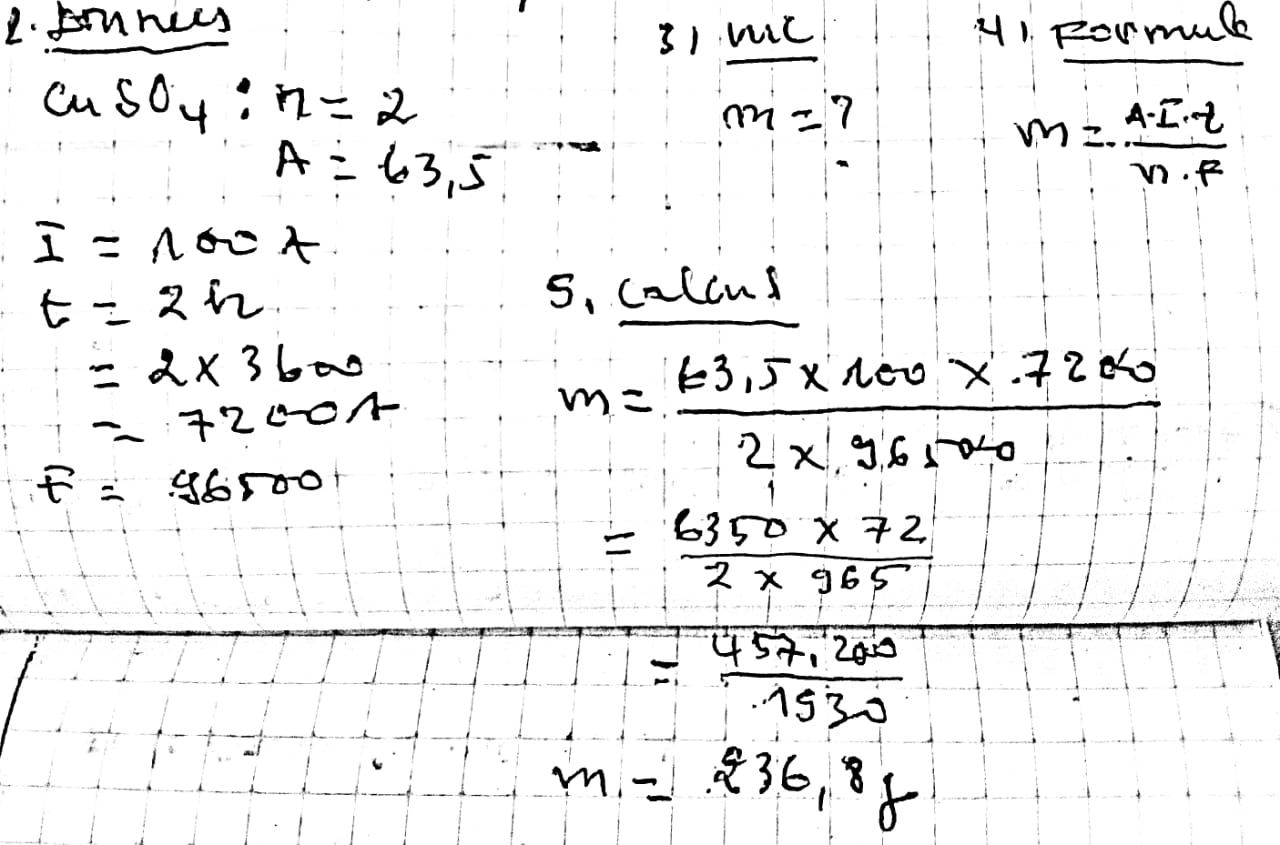 2. Données
CuSO4 : n = 2
A = 63,5
I = 100 A
t = 2 h
= 2 x 3600
= 7200 s
F = 96500
3) inc
m = ?
4) Formule
m = A.I.t / n.F
5, calculs
m = 63,5 x 100 x 7200 / 2 x 96500
= 6350 x 72 / 2 x 965
= 457,200 / 1930
m = 236,8 g